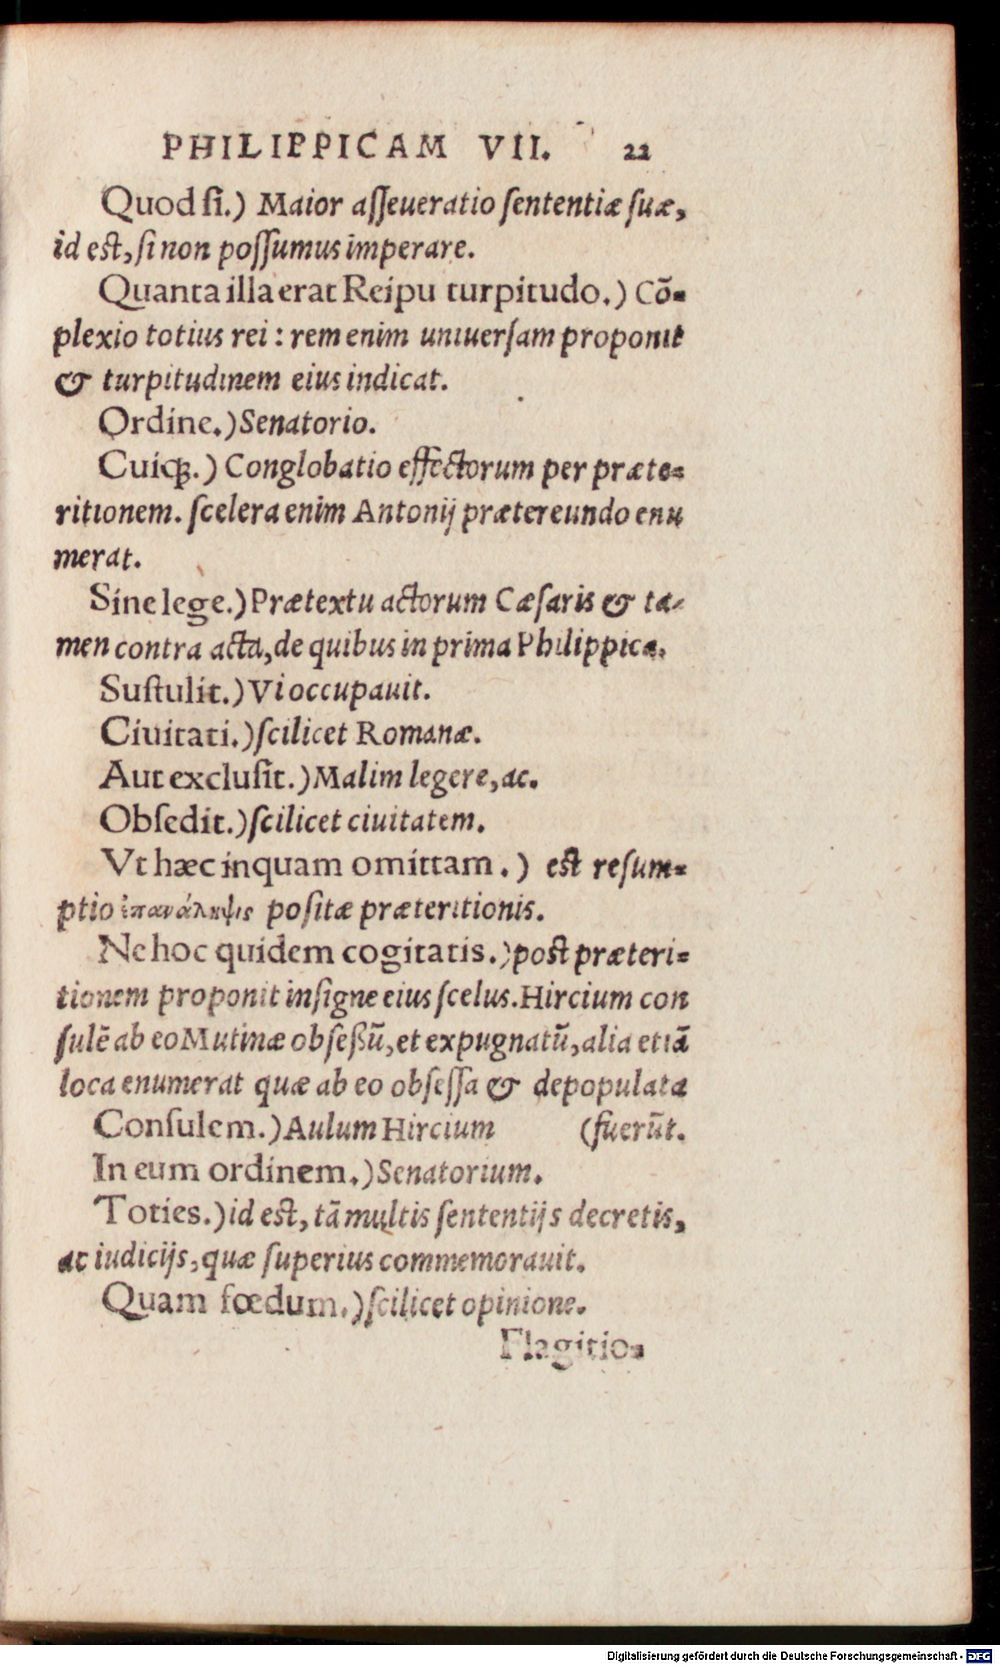 PHILIPPICAM VII. 22
Quod si.) Maior asseueratio sententiæ suæ,
id est, si non possumus imperare.
Quanta illa erat Reipu turpitudo.) Cō-
plexio totius rei : rem enim uniuersam proponit
& turpitudinem eius indicat.
Ordine.) Senatorio.
Cuiqꝫ.) Conglobatio effectorum per præte-
ritionem. scelera enim Antonij prætereundo enu
merat.
Sine lege.) Prætextu actorum Cæsaris & ta-
men contra acta, de quibus in prima Philippica.
Sustulit.) Vi occupauit.
Ciuitati.) scilicet Romanæ.
Aut exclusit.) Malim legere, ac.
Obsedit.) scilicet ciuitatem.
Vt hæc inquam omittam.) est resum-
ptio ἐπανάληψις positæ præteritionis.
Ne hoc quidem cogitatis.) post præteri-
tionem proponit insigne eius scelus. Hircium con
sulē ab eo Mutinæ obseßū, et expugnatū, alia etiā
loca enumerat quæ ab eo obsessa & depopulata
Consulem.) Aulum Hircium (fuerūt.
In eum ordinem.) Senatorium.
Toties.) id est, tā multis sententijs decretis,
ac iudicijs, quæ superius commemorauit.
Quam fœdum.) scilicet opinione.
Flagitio-
Digitalisierung gefördert durch die Deutsche Forschungsgemeinschaft - DFG